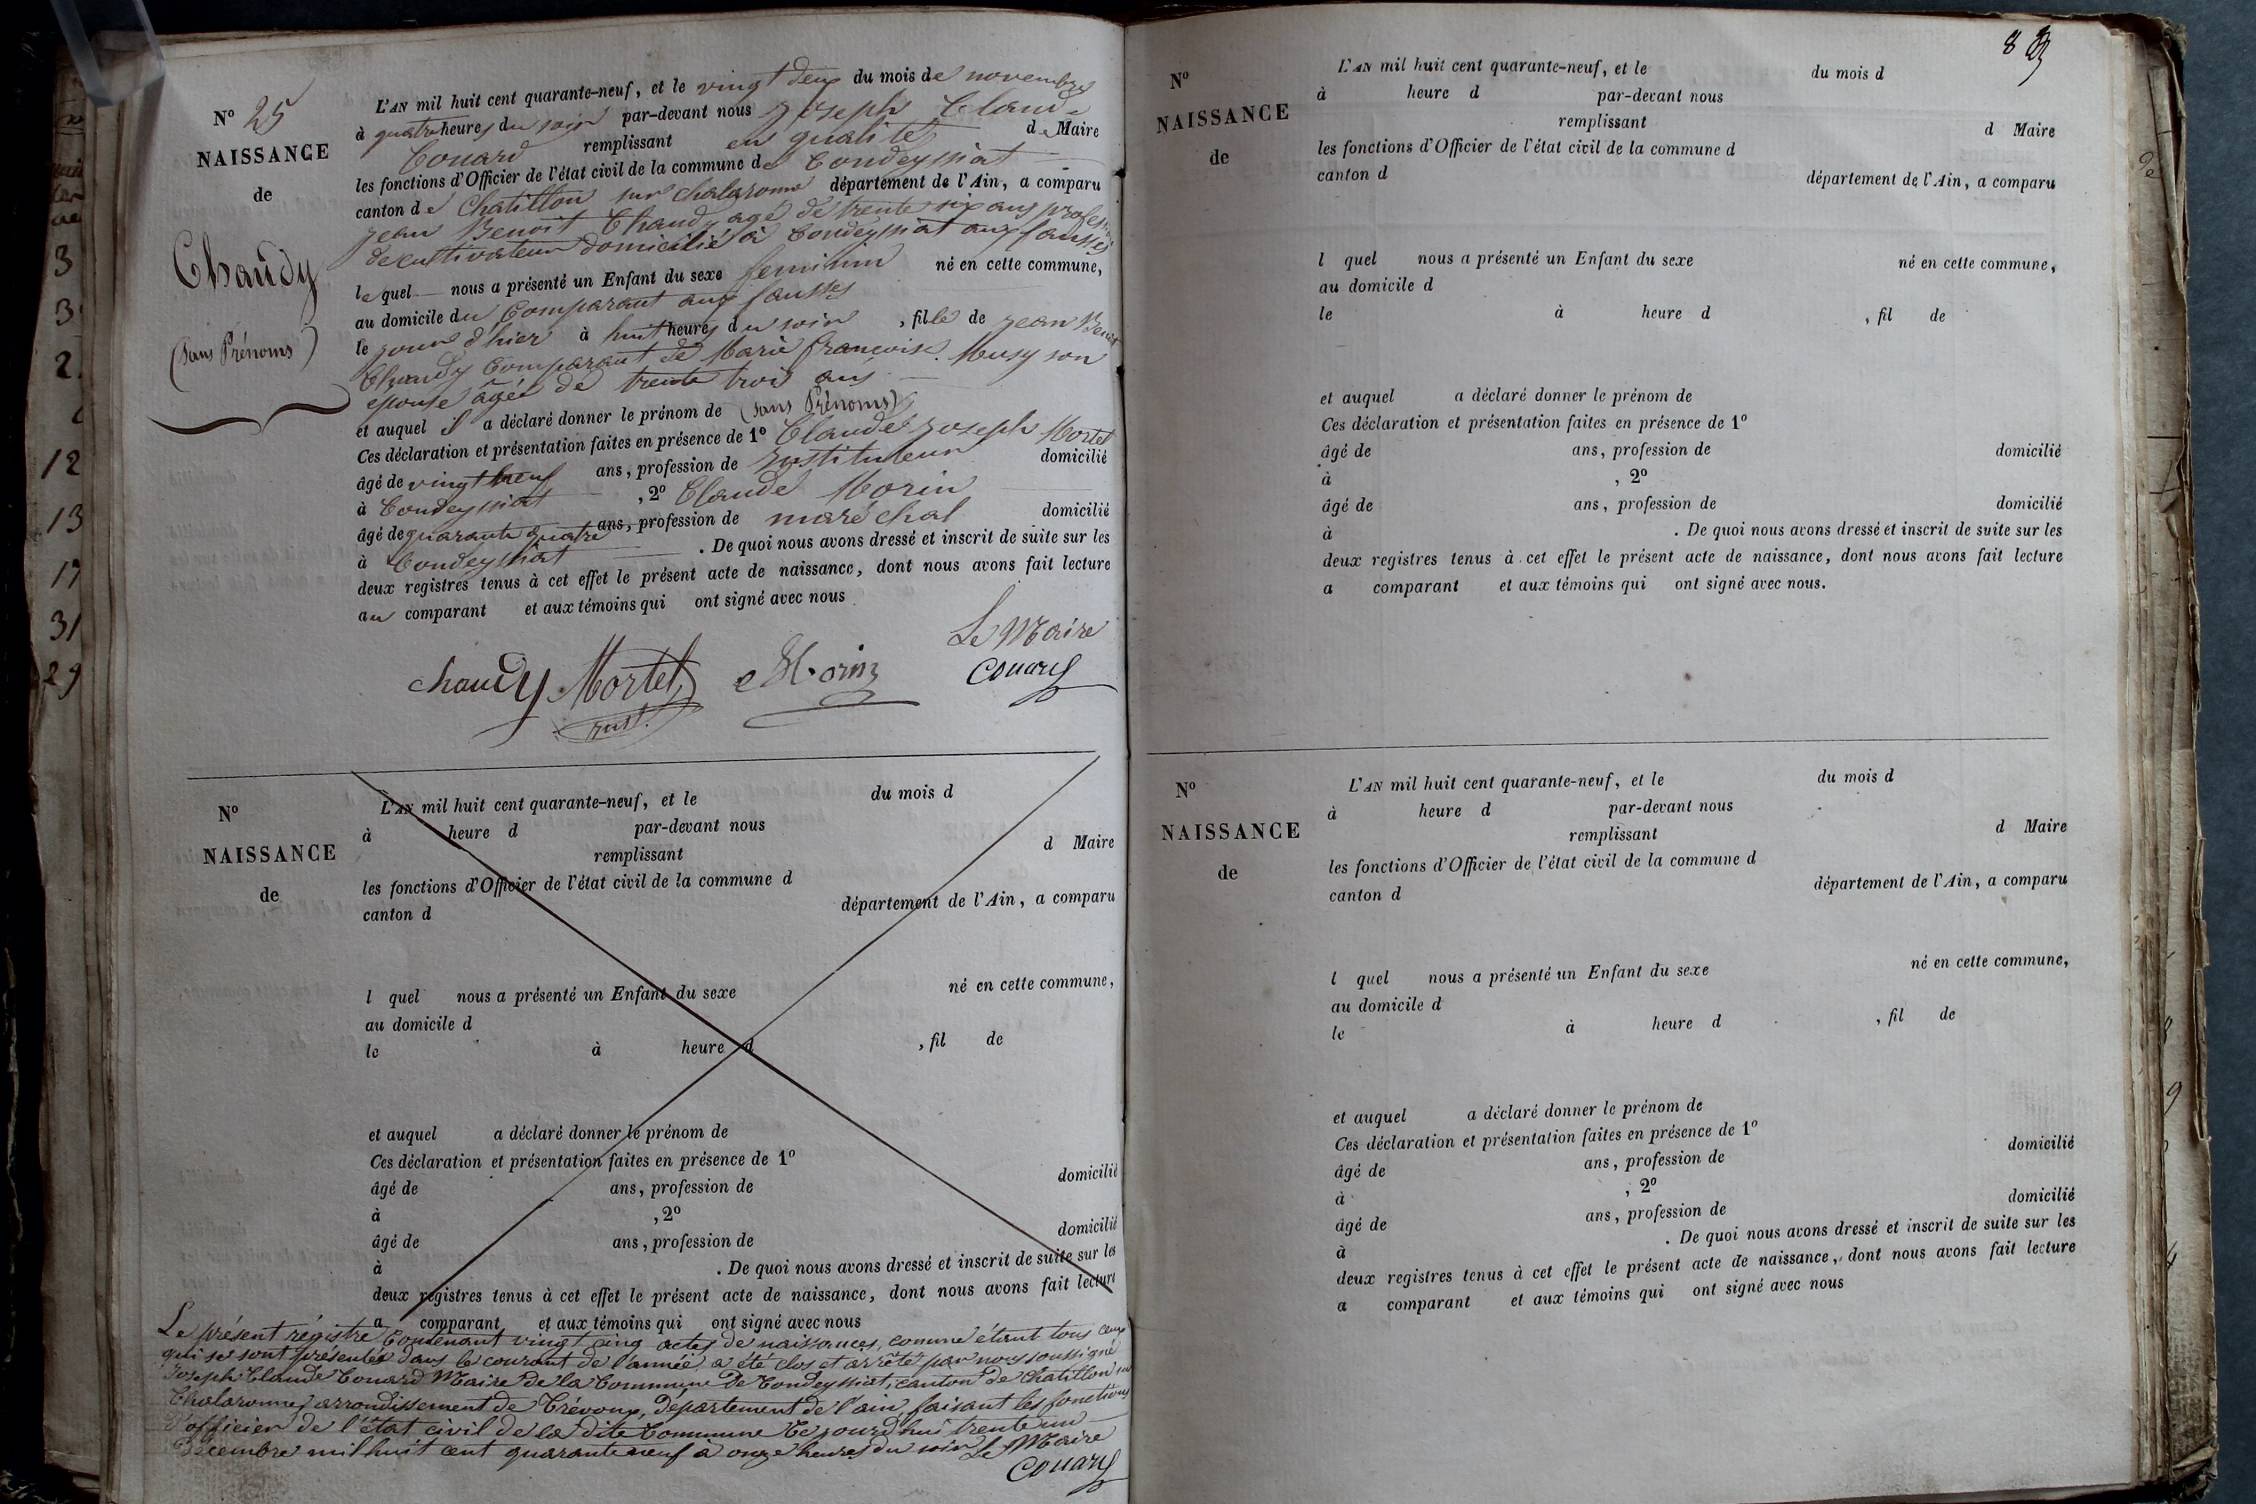 N° 25
NAISSANCE
de
Chaudy
(Sans Prénoms)
L'AN mil huit cent quarante-neuf, et le vingt deux du mois de novembre
à quatre heures du soir par-devant nous Joseph Claude
Couard remplissant en qualité de Maire
les fonctions d'Officier de l'état civil de la commune de Condeyssiat
canton de Chatillon sur chalaronne département de l'Ain, a comparu
Jean Benoit Chaudy agé de trente six ans profession
de cultivateur domicilié à Condeyssiat aux fausses
lequel nous a présenté un Enfant du sexe feminin né en cette commune,
au domicile du Comparant aux fausses
le jour d'hier à huit heures du soir, fille de Jean Benoit
Chaudy Comparant de Marie françoise Musy son
epouse âgée de trente trois ans
et auquel il a déclaré donner le prénom de (Sans Prénoms)
Ces déclaration et présentation faites en présence de 1° Claude Joseph Mortel
âgé de vingt neuf ans, profession de Instituteur domicilié
à Condeyssiat, 2° Claude Morin
âgé de quarante quatre ans, profession de maréchal domicilié
à Condeyssiat. De quoi nous avons dressé et inscrit de suite sur les
deux registres tenus à cet effet le présent acte de naissance, dont nous avons fait lecture
au comparant et aux témoins qui ont signé avec nous
Le Maire
chaudy Mortel Morin Couard
Inst.
N°
NAISSANCE
de
L'AN mil huit cent quarante-neuf, et le du mois d
à heure d par-devant nous
remplissant d Maire
les fonctions d'Officier de l'état civil de la commune d
canton d département de l'Ain, a comparu
l quel nous a présenté un Enfant du sexe né en cette commune,
au domicile d
le à heure d , fil de
et auquel a déclaré donner le prénom de
Ces déclaration et présentation faites en présence de 1°
âgé de ans, profession de domicilié
à , 2°
âgé de ans, profession de domicilié
à . De quoi nous avons dressé et inscrit de suite sur les
deux registres tenus à cet effet le présent acte de naissance, dont nous avons fait lecture
a comparant et aux témoins qui ont signé avec nous
Le présent régistre Contenant vingt cinq actes de naissances, comme étant tous ceux
qui se sont présentés dans le courant de l'année a été clos et arrêté par nous soussigné
Joseph Claude Couard Maire de la Commune de Condeyssiat, canton de Chatillon sur
Chalaronne, arrondissement de Trévoux, département de l'ain, faisant les fonctions
d'officier de l'état civil de la dite Commune Ce jourd'hui trente un
Décembre mil huit cent quarante neuf à onze heures du soir Le Maire
Couard
8
N°
NAISSANCE
de
L'AN mil huit cent quarante-neuf, et le du mois d
à heure d par-devant nous
remplissant d Maire
les fonctions d'Officier de l'état civil de la commune d
canton d département de l'Ain, a comparu
l quel nous a présenté un Enfant du sexe né en cette commune,
au domicile d
le à heure d , fil de
et auquel a déclaré donner le prénom de
Ces déclaration et présentation faites en présence de 1°
âgé de ans, profession de domicilié
à , 2°
âgé de ans, profession de domicilié
à . De quoi nous avons dressé et inscrit de suite sur les
deux registres tenus à cet effet le présent acte de naissance, dont nous avons fait lecture
a comparant et aux témoins qui ont signé avec nous.
N°
NAISSANCE
de
L'AN mil huit cent quarante-neuf, et le du mois d
à heure d par-devant nous
remplissant d Maire
les fonctions d'Officier de l'état civil de la commune d
canton d département de l'Ain, a comparu
l quel nous a présenté un Enfant du sexe né en cette commune,
au domicile d
le à heure d , fil de
et auquel a déclaré donner le prénom de
Ces déclaration et présentation faites en présence de 1°
âgé de ans, profession de domicilié
à , 2°
âgé de ans, profession de domicilié
à . De quoi nous avons dressé et inscrit de suite sur les
deux registres tenus à cet effet le présent acte de naissance, dont nous avons fait lecture
a comparant et aux témoins qui ont signé avec nous
3
2
12
13
17
31
29